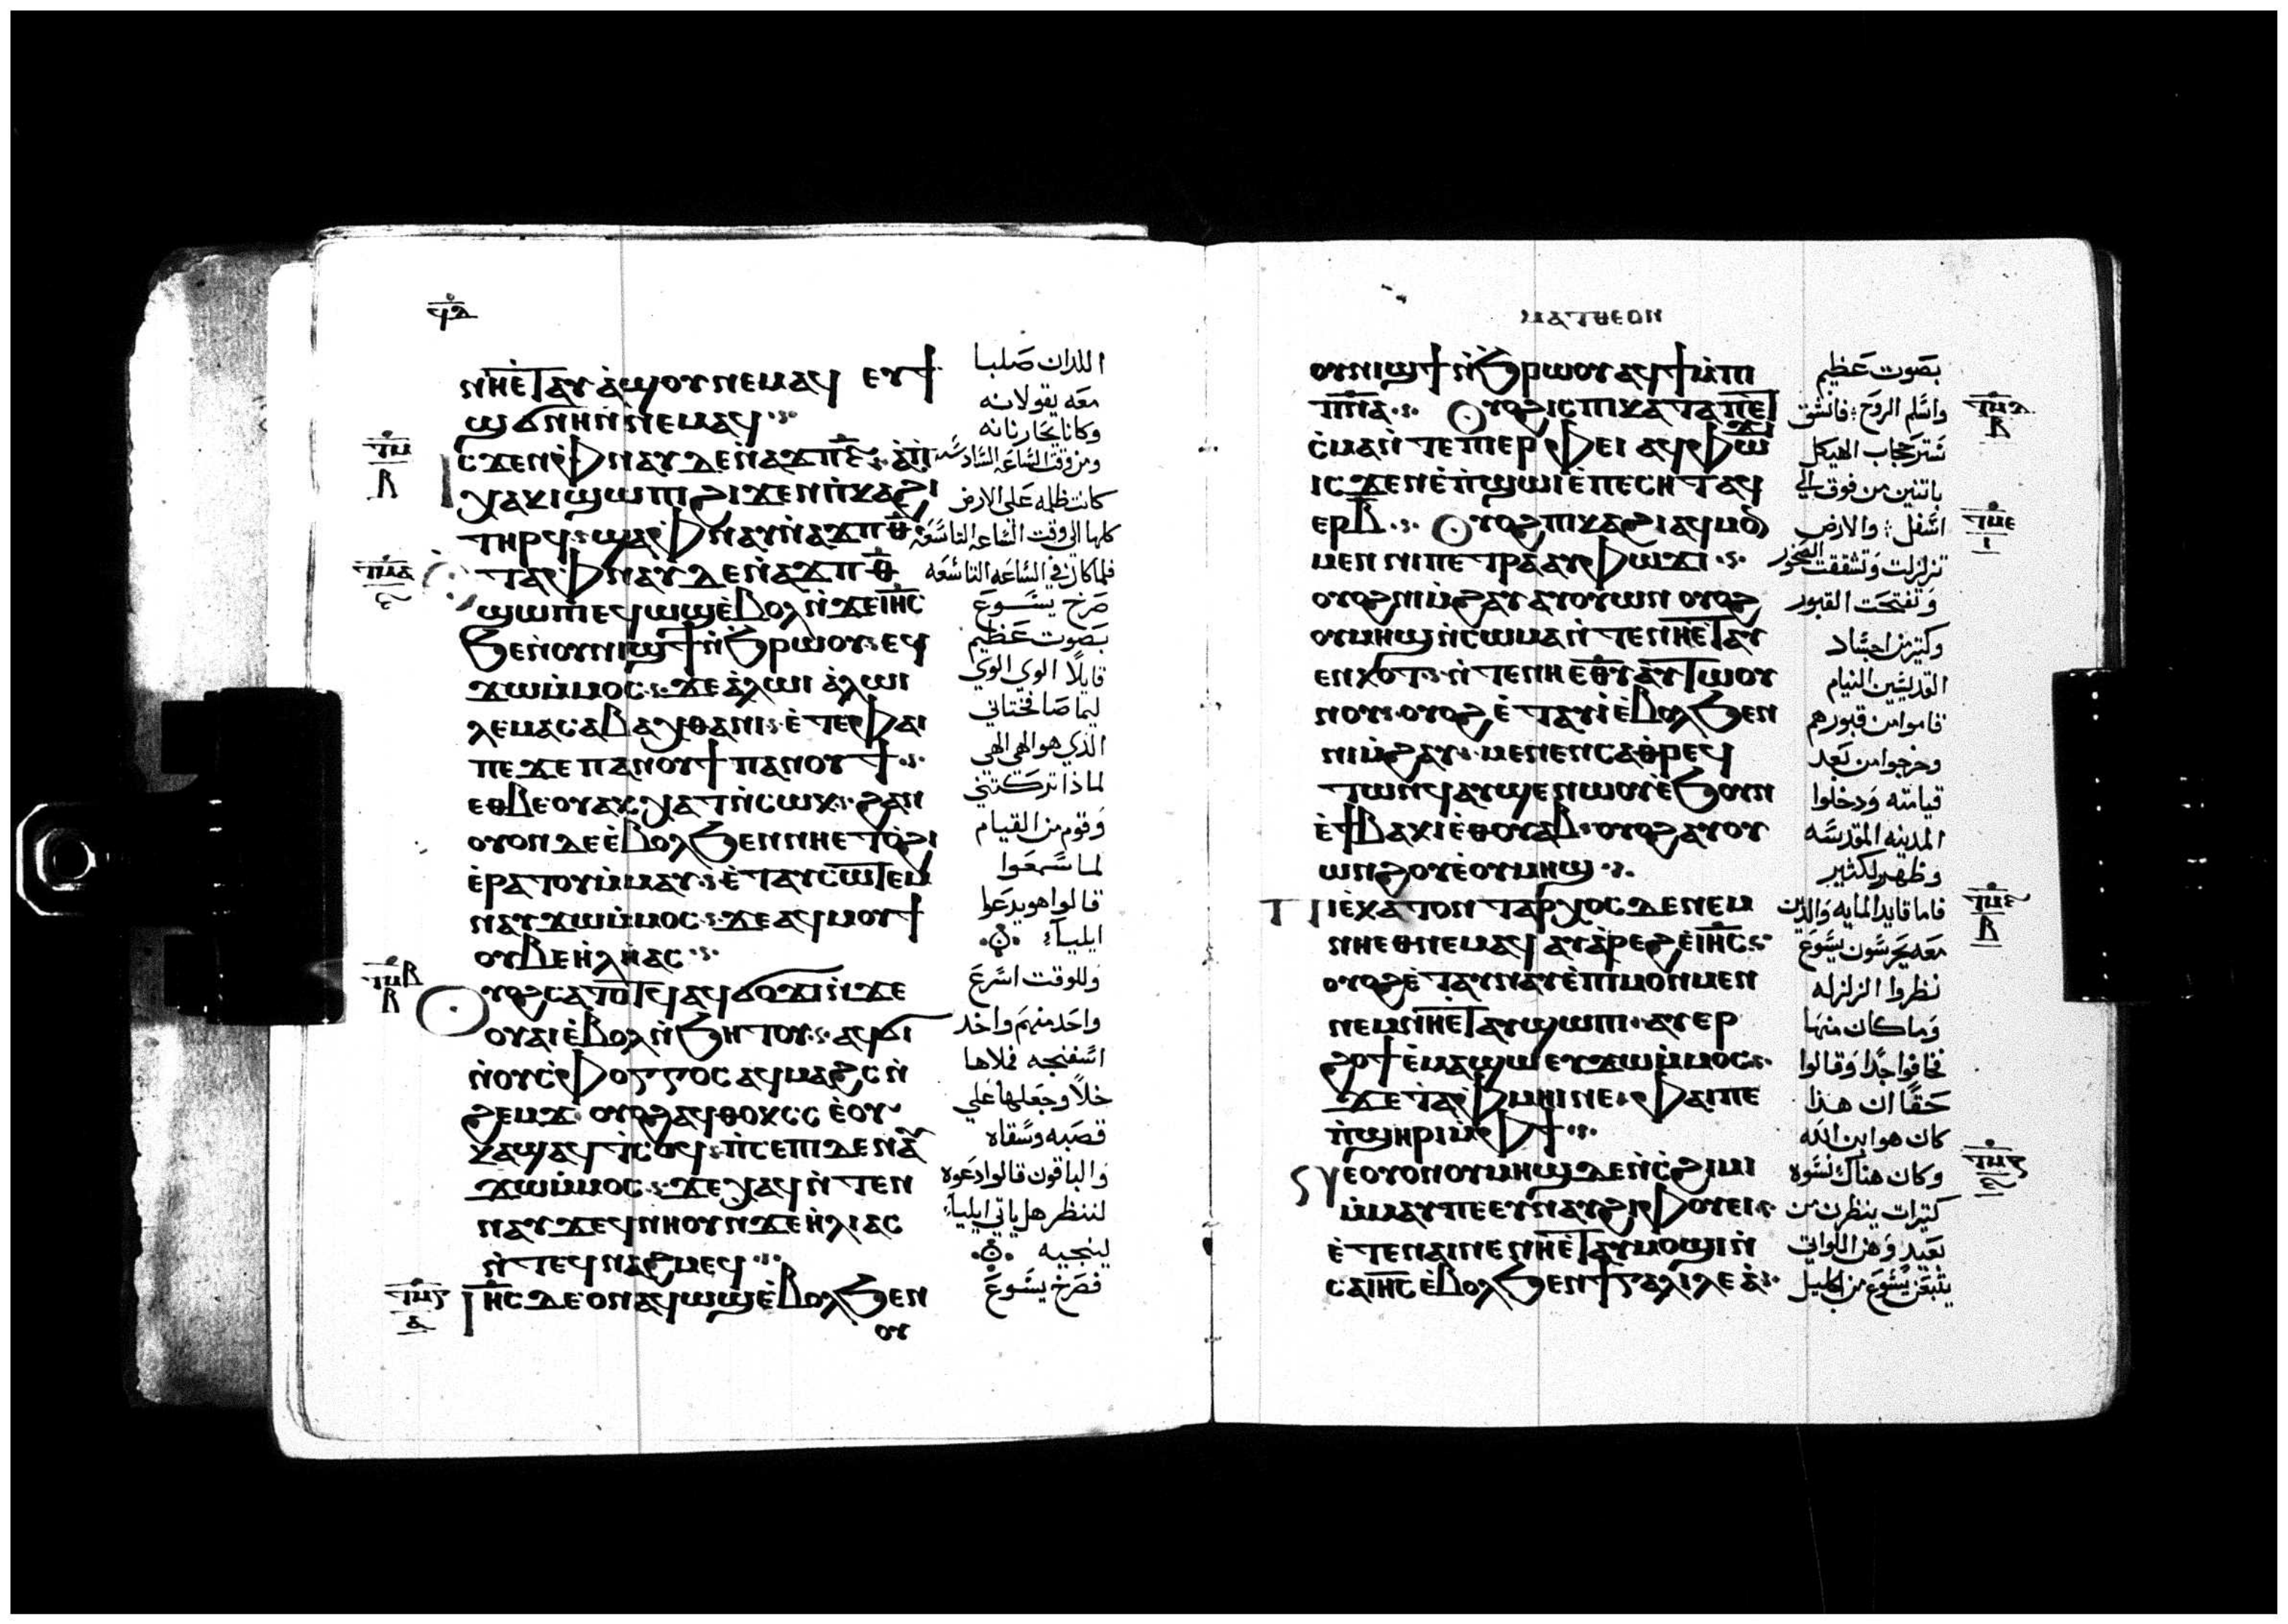 ϥⲇ
ⲛⲏⲉⲧⲁⲩⲁϣⲟⲩⲛⲉⲙⲁϥ ⲉⲩϯ
ϣϭⲛⲏⲛⲛⲉⲙⲁϥ
ⲥϫⲉⲛⲫⲛⲁⲩⲇⲉⲛⲁϫⲡ
ⲭⲁⲕⲓϣⲱⲡⲓϩⲓϫⲉⲛⲡⲕⲁϩⲓ
ⲧⲏⲣϥϣⲁⲫⲛⲁⲩⲛⲁϫⲡⲑ
ⲧⲁⲫⲛⲁⲩⲇⲉⲛⲁϫⲡⲑ
ϣⲱⲡⲉϥⲱϣⲉⲃⲟⲗⲛϫⲉⲓⲏⲥ
ϧⲉⲛⲟⲩⲛⲓϣϯⲛϧⲣⲱⲟⲩⲉϥ
ϫⲱⲙⲙⲟⲥϫⲉⲁⲗⲱⲓ ⲁⲗⲱⲓ
ⲗⲉⲙⲁⲥⲁⲃⲁⲭⲑⲁⲛⲓⲉⲧⲉⲫⲁⲓ
ⲡⲉϫⲉⲡⲁⲛⲟⲩϯⲡⲁⲛⲟⲩϯ
ⲉⲑⲃⲉⲟⲩⲁⲕⲭⲁⲧⲛⲥⲱⲕϩⲁⲛ
ⲟⲩⲟⲛⲇⲉⲉⲃⲟⲗϧⲉⲛⲛⲏⲉⲧⲟϩⲓ
ⲉⲣⲁⲧⲟⲩⲙⲙⲁⲩⲉⲧⲁⲩⲥⲱⲧⲉⲙ
ⲛⲁⲩϫⲱⲙⲙⲟⲥϫⲉⲁϥⲙⲟⲩϯ
ⲟⲩⲃⲉⲏⲗⲏⲁⲥ
ⲟⲩⲟϩⲥⲁⲧⲟⲧϥⲁϥϭⲟϫⲓⲛϫⲉ
ⲟⲩⲁⲓⲉⲃⲟⲗⲛϧⲏⲧⲟⲩⲁϥϭⲓ
ⲛⲟⲩⲥⲫⲟⲅⲅⲟⲥⲁϥⲙⲁϩⲥⲛ
ϩⲉⲙϫ ⲟⲩⲟϩⲁϥⲑⲟⲕⲥⲥ ⲉⲟⲩ
ⲕⲁϣⲁϥⲧⲥⲟϥⲡⲥⲉⲡⲓⲇⲉⲛⲁⲩ
ϫⲱⲙⲙⲟⲥϫⲉⲭⲁϥⲛⲧⲉⲛ
ⲛⲁⲩϫⲉϥⲛⲏⲟⲩⲛϫⲉⲏⲗⲓⲁⲥ
ⲛⲧⲉϥⲛⲁϩⲙⲉϥ
ⲓⲏⲥⲇⲉⲟⲛⲁϥⲱϣⲉⲃⲟⲗϧⲉⲛ
ⲟⲩ
اللدان صلبا
معه يقولانه
وكانا يحاربانه
ومن وقت الساعه السادسه
كانت ظلمه على الارض
كلها الى وقت الساعه التاسعه
فلما كان في الساعه التاسعه
صرخ يسوع
بصوت عظيم
قايلا الوي الوي
ليما صافختاني
الذي هو الهي الهي
لماذا تركتني
وقوم من القيام
لما سمعوا
قالوا هو يدعوا
ايلياء
وللوقت اسرع
واحد منهم واخد
اسفنجه فملاها
خلا وجعلها على
قصبه وسقاه
والباقون قالوا دعوه
لننظر هل ياتي ايلياء
لينجيه
فصرخ يسوع
ⲙⲁⲧⲑⲉⲟⲛ
ⲟⲩⲛⲓϣϯⲛϧⲣⲱⲟⲩⲁϥϯⲙⲡⲓ
ⲡⲛⲁ ⲟⲩⲟϩⲓⲥⲡⲓⲕⲁⲧⲁⲡⲉⲧ
ⲥⲙⲁⲛⲧⲉⲡⲓⲉⲣⲫⲉⲓ ⲁϥⲫⲱϫⲓ
ⲓⲥϫⲉⲛⲉⲡϣⲱⲓⲉⲡⲉⲥⲏⲧⲁϥ
ⲉⲣⲃ ⲟⲩⲟϩⲡⲕⲁϩⲓⲁϥⲙⲟⲛ
ⲙⲉⲛ ⲛⲓⲡⲉⲧⲣⲁⲁⲩⲫⲱϫⲓ
ⲟⲩⲟϩⲛⲓⲙϩⲁⲩⲁⲩⲟⲩⲱⲛ ⲟⲩⲟϩ
ⲟⲩⲙⲏϣⲛⲥⲱⲙⲁⲛⲧⲉⲛⲏⲉⲧⲁⲩ
ⲉⲛⲕⲟⲧⲛⲧⲉⲛⲏⲉⲑⲩ ⲁⲩⲧⲱⲟⲩ
ⲛⲟⲩ ⲟⲩⲟϩ ⲉⲧⲁⲩⲓⲉⲃⲟⲗϧⲉⲛ
ⲛⲓⲙϩⲁⲩ ⲙⲉⲛⲉⲛⲥⲁⲑⲣⲉϥ
ⲧⲱⲛϥⲁⲩϣⲉⲛⲱⲟⲩⲉϧⲟⲩⲛ
ⲉϯⲃⲁⲕⲓⲉⲑⲟⲩⲁⲃⲟⲩⲟϩⲁⲩⲟⲩ
ⲱⲛϩⲟⲩⲉⲟⲩⲙⲏϣ
ⲡⲓⲉⲕⲁⲧⲟⲛⲧⲁⲣⲭⲟⲥⲇⲉⲛⲉⲙ
ⲛⲏⲉⲑⲛⲉⲙⲁϥ ⲁⲩⲁⲣⲉϩⲉⲓⲏⲥ
ⲟⲩⲟϩⲉⲧⲁⲩⲛⲁⲩⲉⲡⲓⲙⲟⲛⲙⲉⲛ
ⲛⲉⲙⲛⲏⲉⲧⲁⲩϣⲱⲡⲓⲁⲩⲉⲣ
ϩⲟϯⲉⲙⲁϣⲱⲉⲩϫⲱⲙⲙⲟⲥ
ϫⲉⲧⲁⲫⲙⲏⲓⲛⲉⲫⲁⲓⲡⲉ
ⲡϣⲏⲣⲓⲙⲫϯ
ⲛⲉⲟⲩⲟⲛⲟⲩⲙⲏϣⲇⲉⲛⲥϩⲓⲙⲓ
ⲙⲙⲁⲩⲡⲉⲉⲩⲛⲁⲩϩⲓⲫⲟⲩⲉⲓ
ⲉⲧⲉⲛⲁⲓⲛⲉⲛⲏⲉⲧⲁⲩⲙⲟϣⲓⲛ
ⲥⲁⲓⲏⲥⲉⲃⲟⲗϧⲉⲛϯⲅⲁⲗⲓⲗⲉⲁ
بصوت عظيم
واسلم الروح فانشق
ستر حجاب الهيكل
باتنين من فوق الى
اسفل والارض
تزلزلت وتشققت الصخور
وتفتحت القبور
وكتير من اجساد
القديسين النيام
قاموا من قبورهم
وخرجوا من بعد
قيامته ودخلوا
المدينه المقدسه
وظهر لكثير
فاما قايد المايه والدين
معه يحرسون يسوع
نظروا الزلزله
وما كان منها
فخافوا جدا وقالوا
حقا ان هذا
كان هو ابن الله
وكان هناك نسوه
كتيرات ينظرن من
بعيد وهن اللواتي
يتبعن يسوع من الجليل